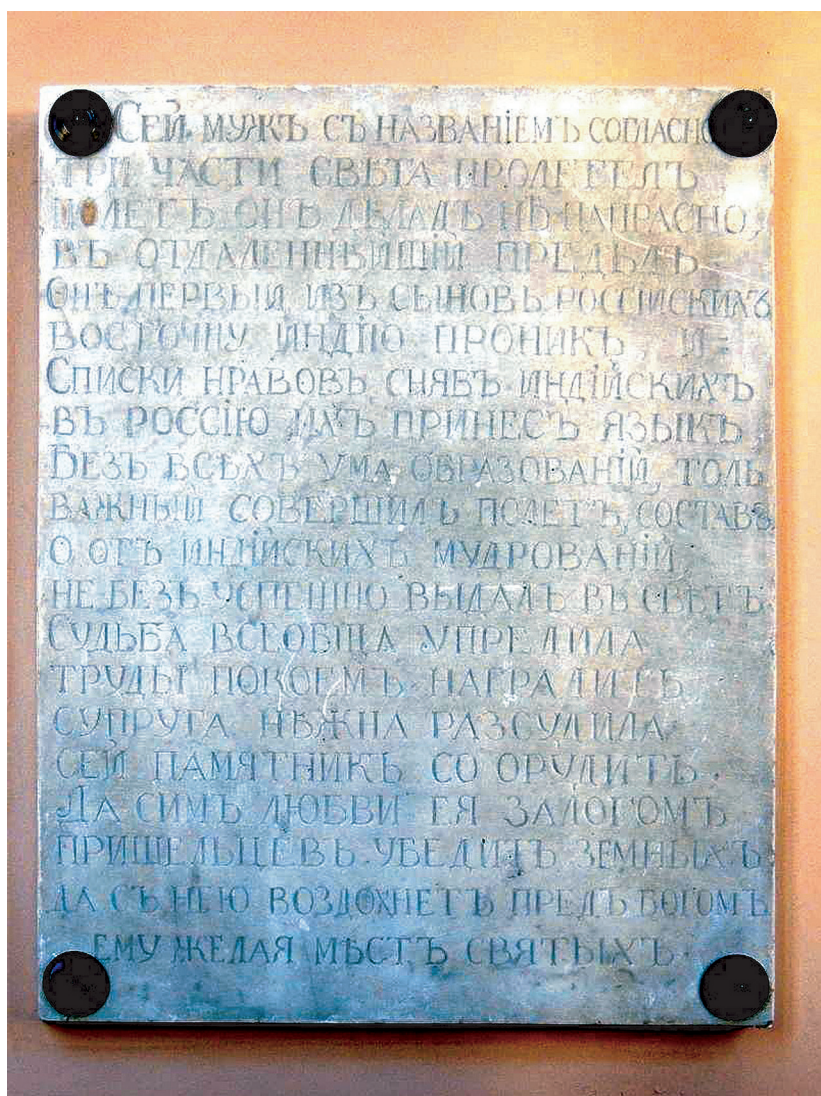 Сей мужъ съ названіемъ согласно
три части света пролетелъ
полетъ онъ дѣлалъ не напрасно,
въ отдаленнѣйшій предѣлъ
Онъ первый изъ сыновъ россійскихъ
восточну индію проникъ, и=
Списки нравовъ снявъ индійскихъ
въ россію ихъ принесъ языкъ
Безъ всѣхъ ума образованій, толь
важный совершилъ полетъ, составъ
о отъ индійскихъ мудрованій
не безъ успешно выдалъ въ светъ.
Судьба всеобща упредила
труды покоемъ наградить
супруга нѣжна разсудила
сей памятникъ со орудить.
Да симъ любви ея залогомъ
пришельцевъ убедитъ земныхъ
да съ нею воздохнетъ предъ богомъ
ему желая мѣстъ святыхъ.